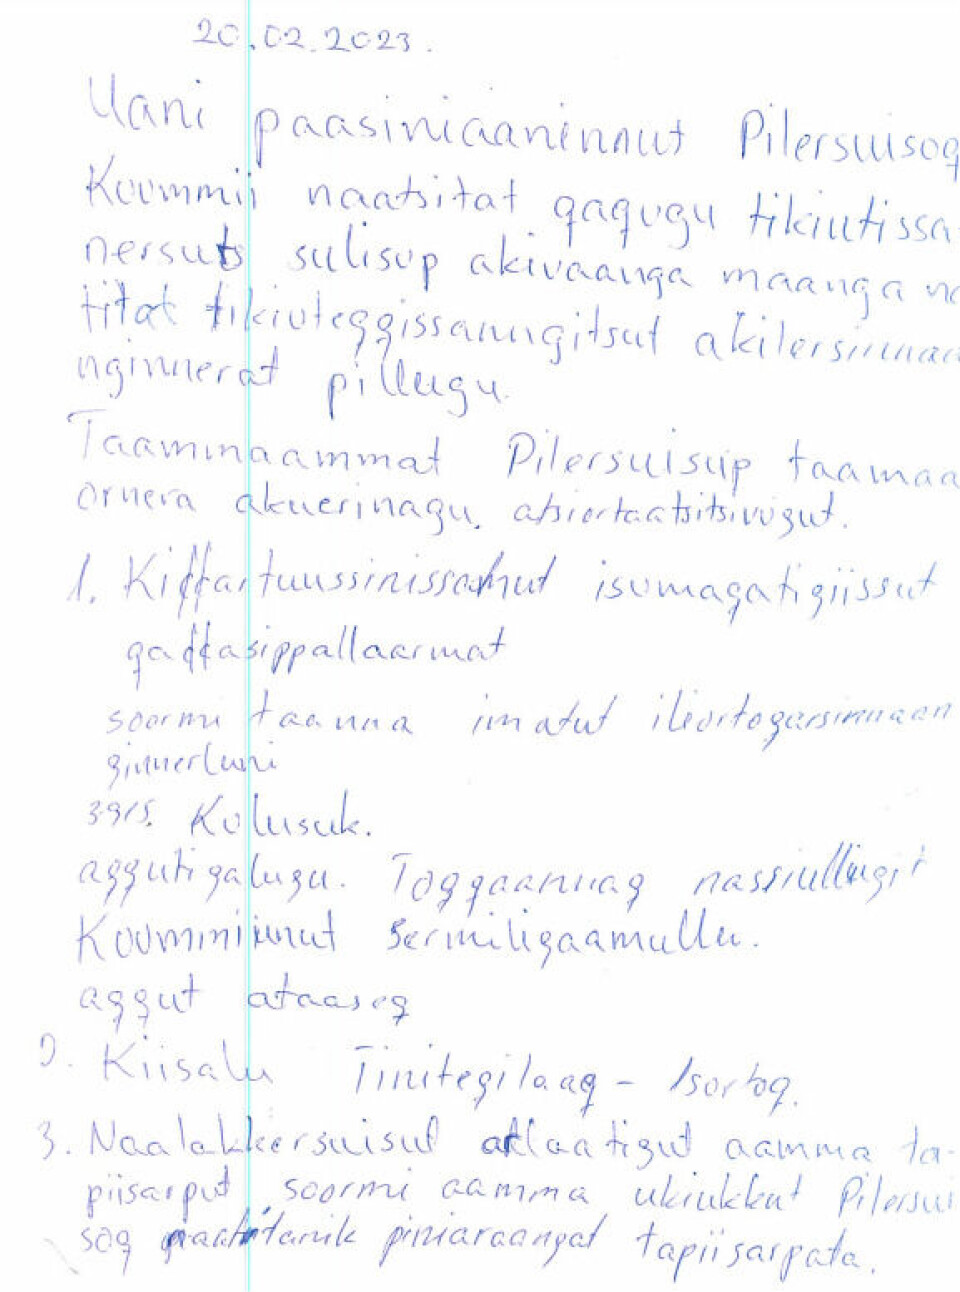 20.02.2023.
Uani paasiniaaninnut Pilersuisoq
Kuummii naatsitat qaqugu tikiutissa-
nersut sulisup akivaanga maanga na
titat tikiuteqqissanngitsut akilersinnaa
nginnerat pillugu.
Taaminaammat Pilersuisup taamaa
ornera akuerinagu, atsiortaatsitsivugut.
1. Kiffartuussinissamut isumaqatigiissut
qaffasippallaarmat
soormi taanna imatut iliortoqarsinnaan
ginnerluni
3915. Kulusuk.
aqqutigalugu. Toqqaannaq nassiullugit
Kuummiinut Sermiligaamullu.
aqqut ataaseq
2. Kiisalu Tiniteqilaaq - Isortoq.
3. Naalakkersuisut atlaatigut aamma ta-
piisarput, soormi aamma ukiukkut Pilersui
soq piniaraangat tapiisarpata.